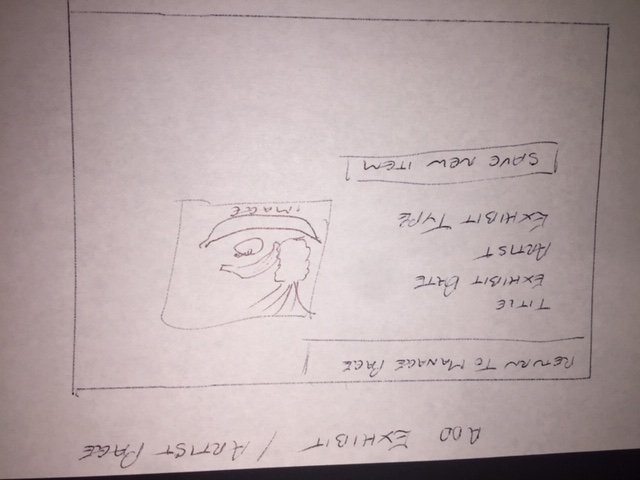 ADD EXHIBIT / ARTIST PAGE
RETURN TO MANAGE PAGE
TITLE
EXHIBIT DATE
ARTIST
EXHIBIT TYPE
IMAGE
SAVE NEW ITEM